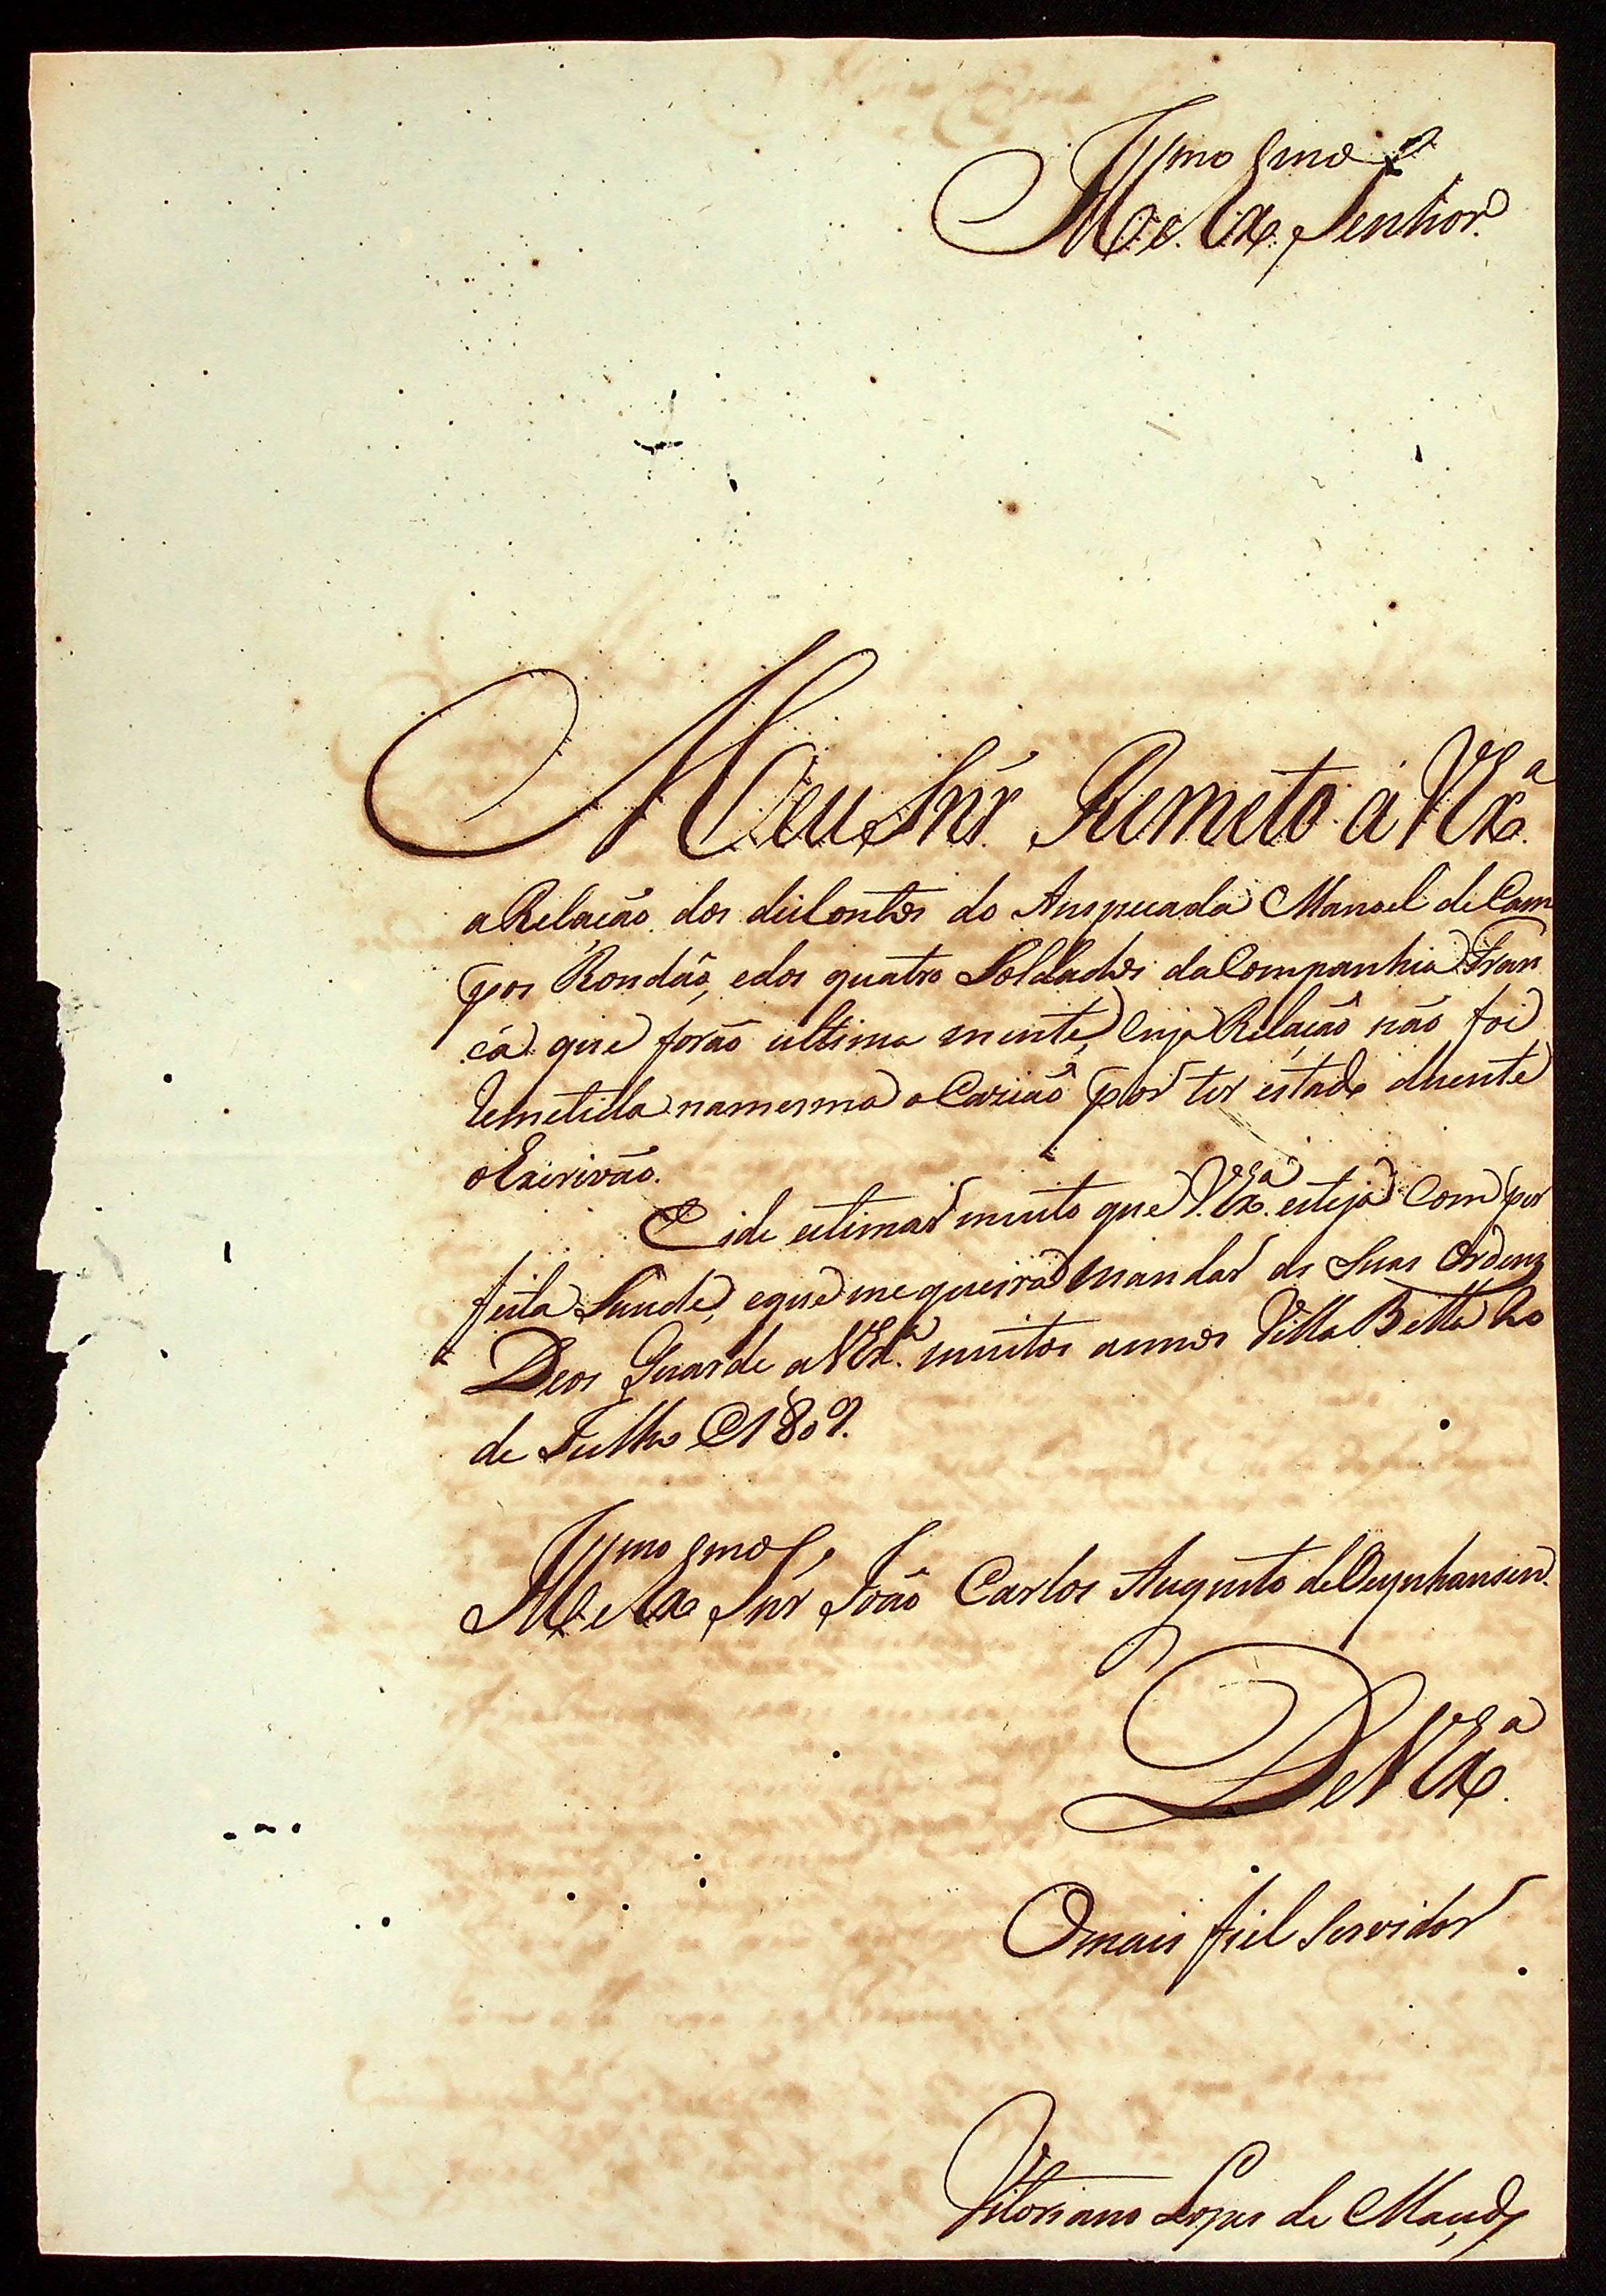 Illmo e Exmo Senhor.
Meu Snr. Remeto a VExa.
a Relação dos discontos do Anspecada Manoel de Cam
pos Rondão, e dos quatro Soldados da Companhia Fran
ca que forão ultima mente, cuja Relação não foi
remetida na mesma ocazião por ter estado duente
o Escrivão.
Eide estimar muito que V.Exa. esteja com per
feita Saude, e que me queira mandar as Suas Ordenz
Deos Guarde a VExa. muitos annos Villa Bella
de Julho 1809.
Illmo e Exmo Snr João Carlos Augusto de Oeynhausen.
De VExa.
O mais fiel Servidor
Vitoriano Lopes de